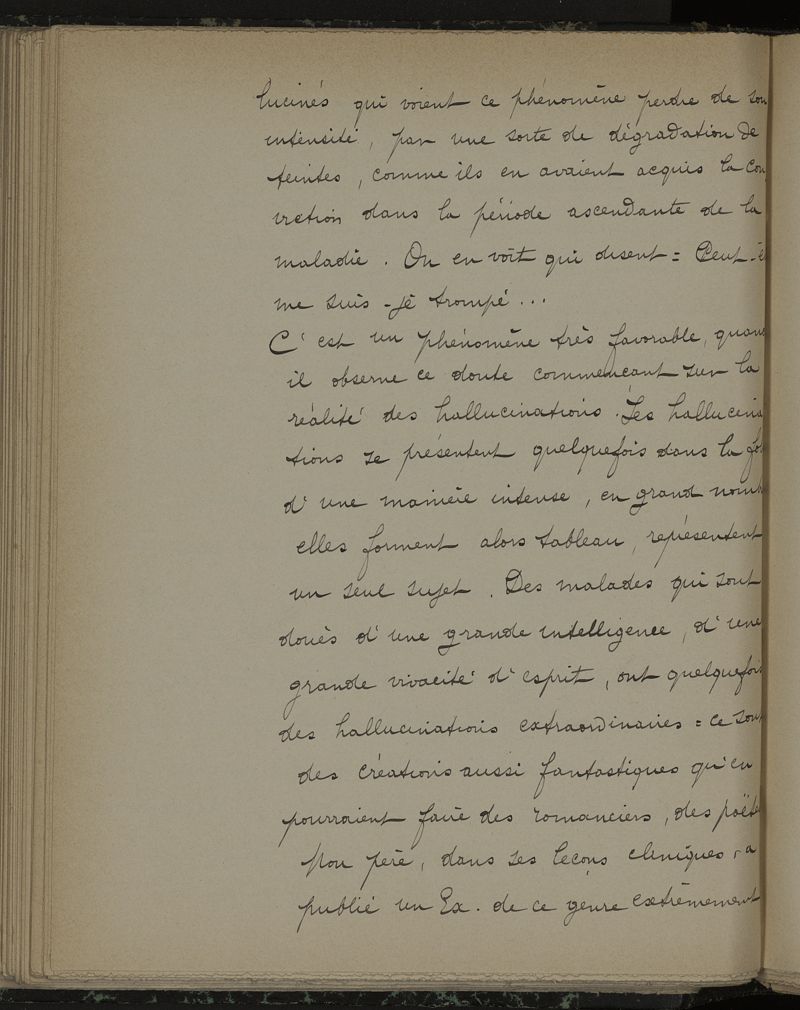 lucinés qui voient ce phénomène perdre de son
intensité, par une sorte de dégradation de
teintes, comme ils en avaient acquis la con
viction dans la période ascendante de la
maladie. On en voit qui disent = Peut-ê
me suis-je trompé...
C'est un phénomène très favorable, quand
il observe ce doute commencant sur la
réalité des hallucinations. Les hallucina
tions se présentent quelquefois dans la fol
d'une manière intense, en grand nomb
elles forment alors tableau, représentent
un seul sujet. Des malades qui sont
doués d'une grande intelligence, d'une
grande vivacité d'esprit, ont quelquefois
des hallucinations extraordinaires = ce sont
des créations aussi fantastiques qu'en
pourraient faire des romanciers, des poëte
Mon père, dans ses lecons cliniques, a
publié un Ex. de ce genre extrêmement